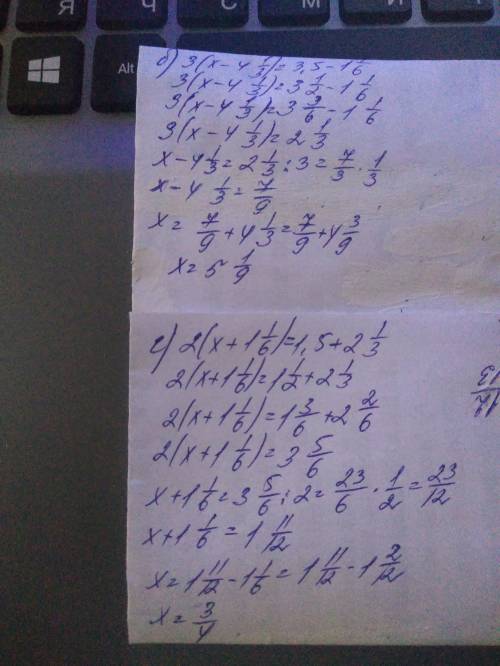 Я Ч С М И
Alt
б) 3(x-4 1/3)=3,5-1 1/6
3(x-4 1/3)=3 1/2-1 1/6
3(x-4 1/3)=3 3/6-1 1/6
3(x-4 1/3)=2 1/3
x-4 1/3=2 1/3:3=7/3·1/3
x-4 1/3=7/9
x=7/9+4 1/3=7/9+4 3/9
x=5 1/9
г) 2(x+1 1/6)=1,5+2 1/3
2(x+1 1/6)=1 1/2+2 1/3
2(x+1 1/6)=1 3/6+2 2/6
2(x+1 1/6)=3 5/6
x+1 1/6=3 5/6:2=23/6·1/2=23/12
x+1 1/6=1 11/12
x=1 11/12-1 1/6=1 11/12-1 2/12
x=3/4